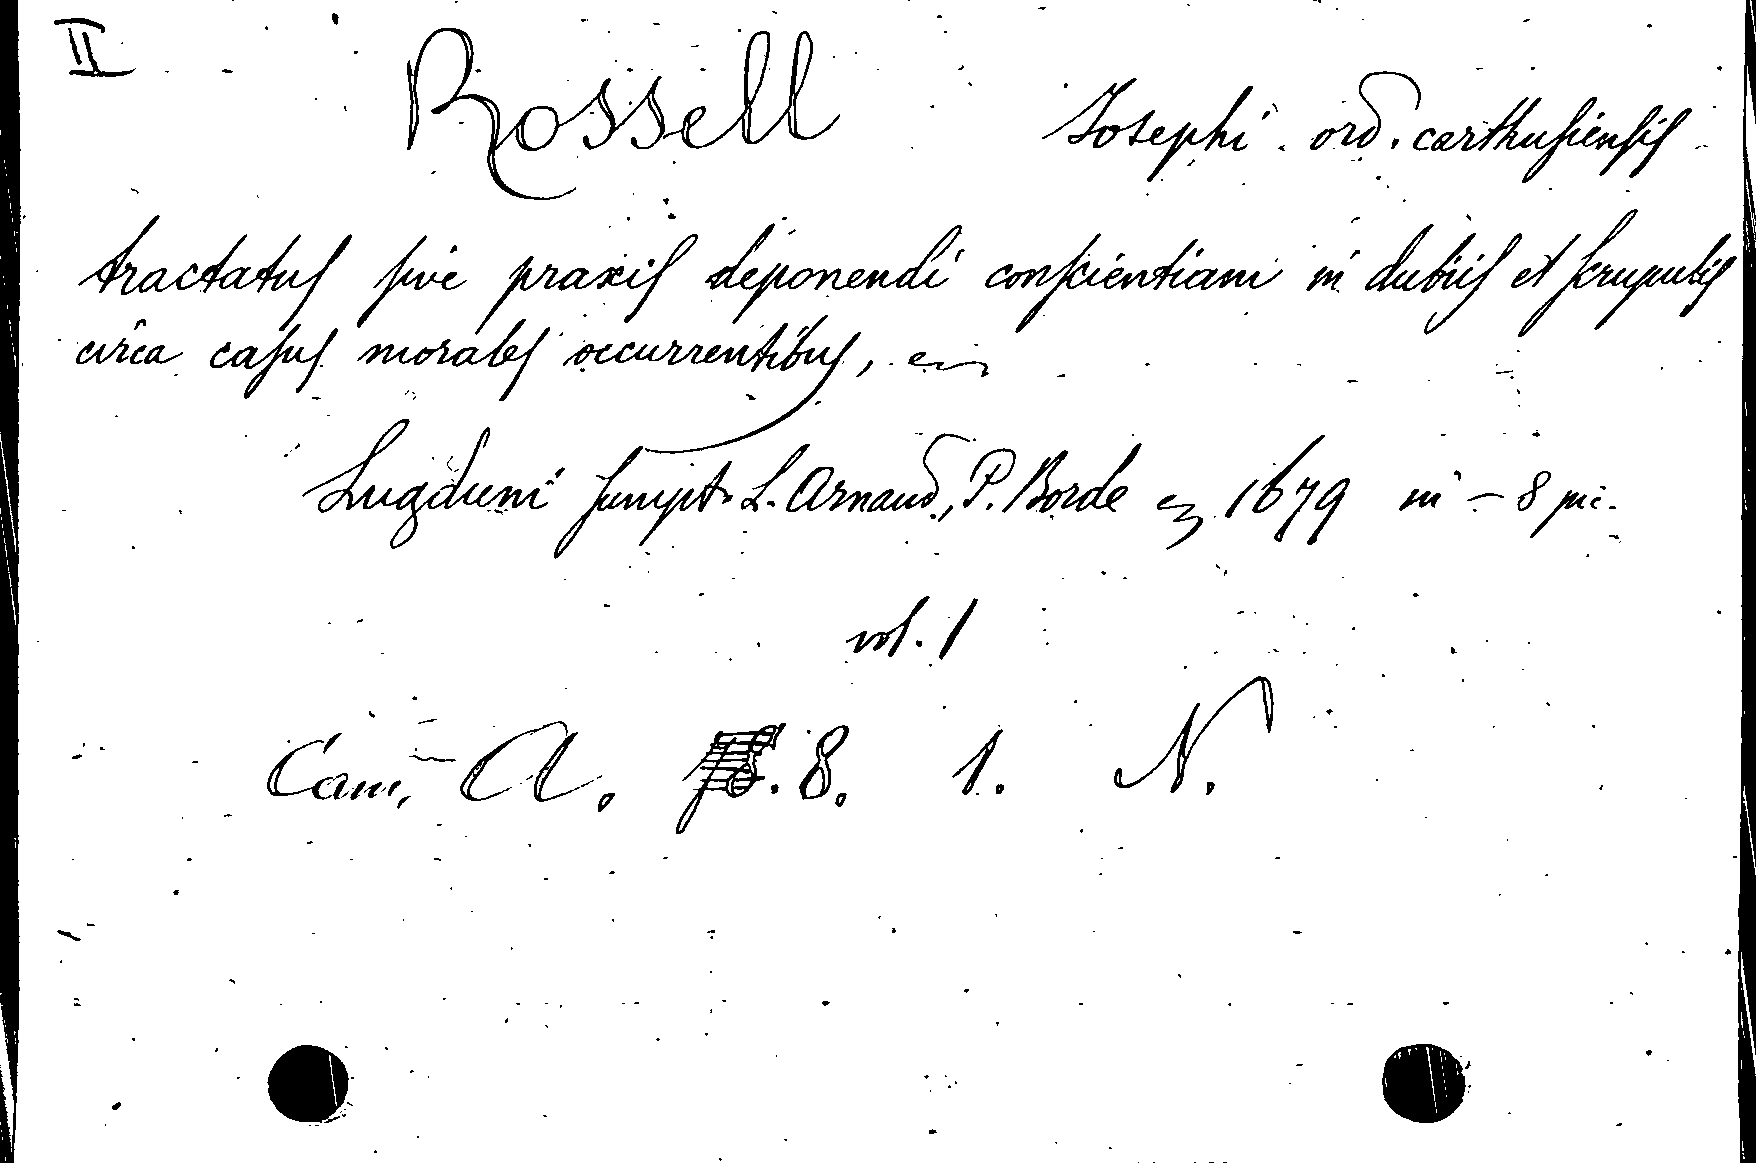 II Rossell Josephi ord. carthusiensis
tractatus sive praxis deponendi conscientiam in dubiis et scrupulis
circa casus morales occurrentibus,
Lugduni sumpt. L. Arnaud, P. Borde 1679 in - 8 pic.
vol. 1
Cam. A. 8. 1. N.